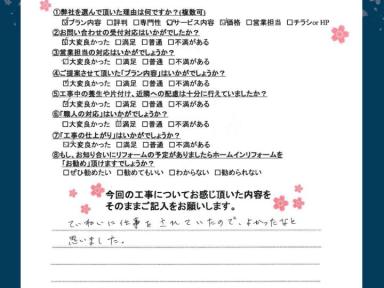 ①弊社を選んで頂いた理由は何ですか?(複数可)
☑プラン内容 □評判 □専門性 ☑サービス内容 ☑価格 □営業担当 □チラシor HP
②お問い合わせの受付対応はいかがでしたか?
☑大変良かった □満足 □普通 □不満がある
③営業担当の対応はいかがでしょうか?
☑大変良かった □満足 □普通 □不満がある
④ご提案させて頂いた「プラン内容」はいかがでしょうか?
☑大変良かった □満足 □普通 □不満がある
⑤工事中の養生や片付け、近隣への配慮は十分に行えていましたか?
☑大変良かった □満足 □普通 □不満がある
⑥「職人の対応」はいかがでしょうか?
□大変良かった ☑満足 □普通 □不満がある
⑦「工事の仕上がり」はいかがでしょうか?
□大変良かった ☑満足 □普通 □不満がある
⑧もし、お知り合いにリフォームの予定がありましたらホームインリフォームを
「お勧め」頂けますでしょうか?
□ぜひ勧めたい □勧めてもいい □わからない □勧められない
今回の工事についてお感じ頂いた内容を
そのままご記入をお願いします。
ていねいに仕事をされていたので、よかったなと
思いました。